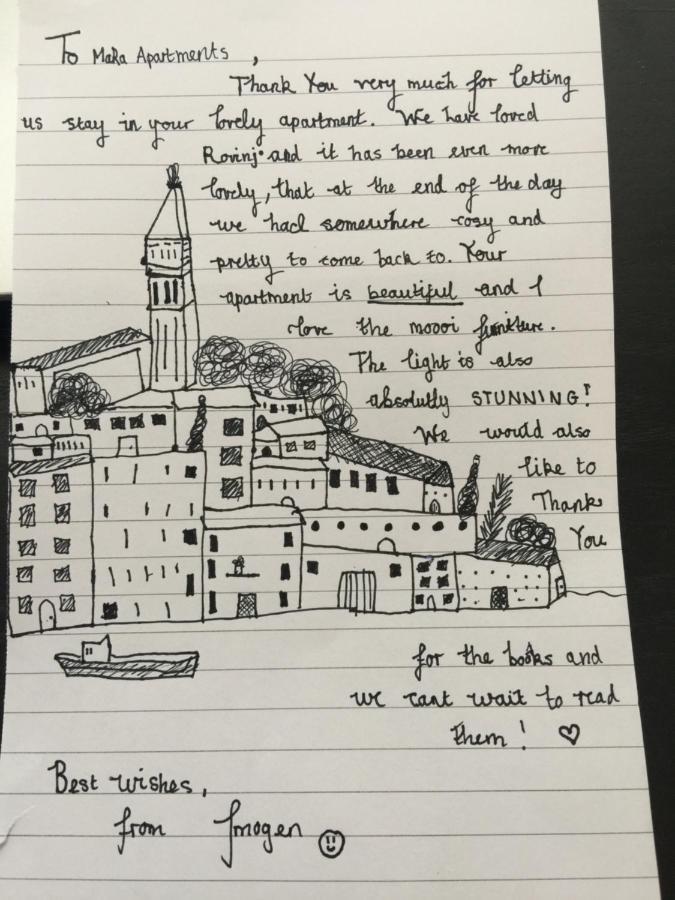 To MaRa Apartments,
Thank You very much for letting
us stay in your lovely apartment. We have loved
Rovinj and it has been even more
lovely, that at the end of the day
we had somewhere cosy and
pretty to come back to. Your
apartment is beautiful and I
love the moooi furniture.
The light is also
absolutly STUNNING!
We would also
like to
Thank
You
for the books and
we cant wait to read
them! ♡
Best wishes,
from Imogen ☺